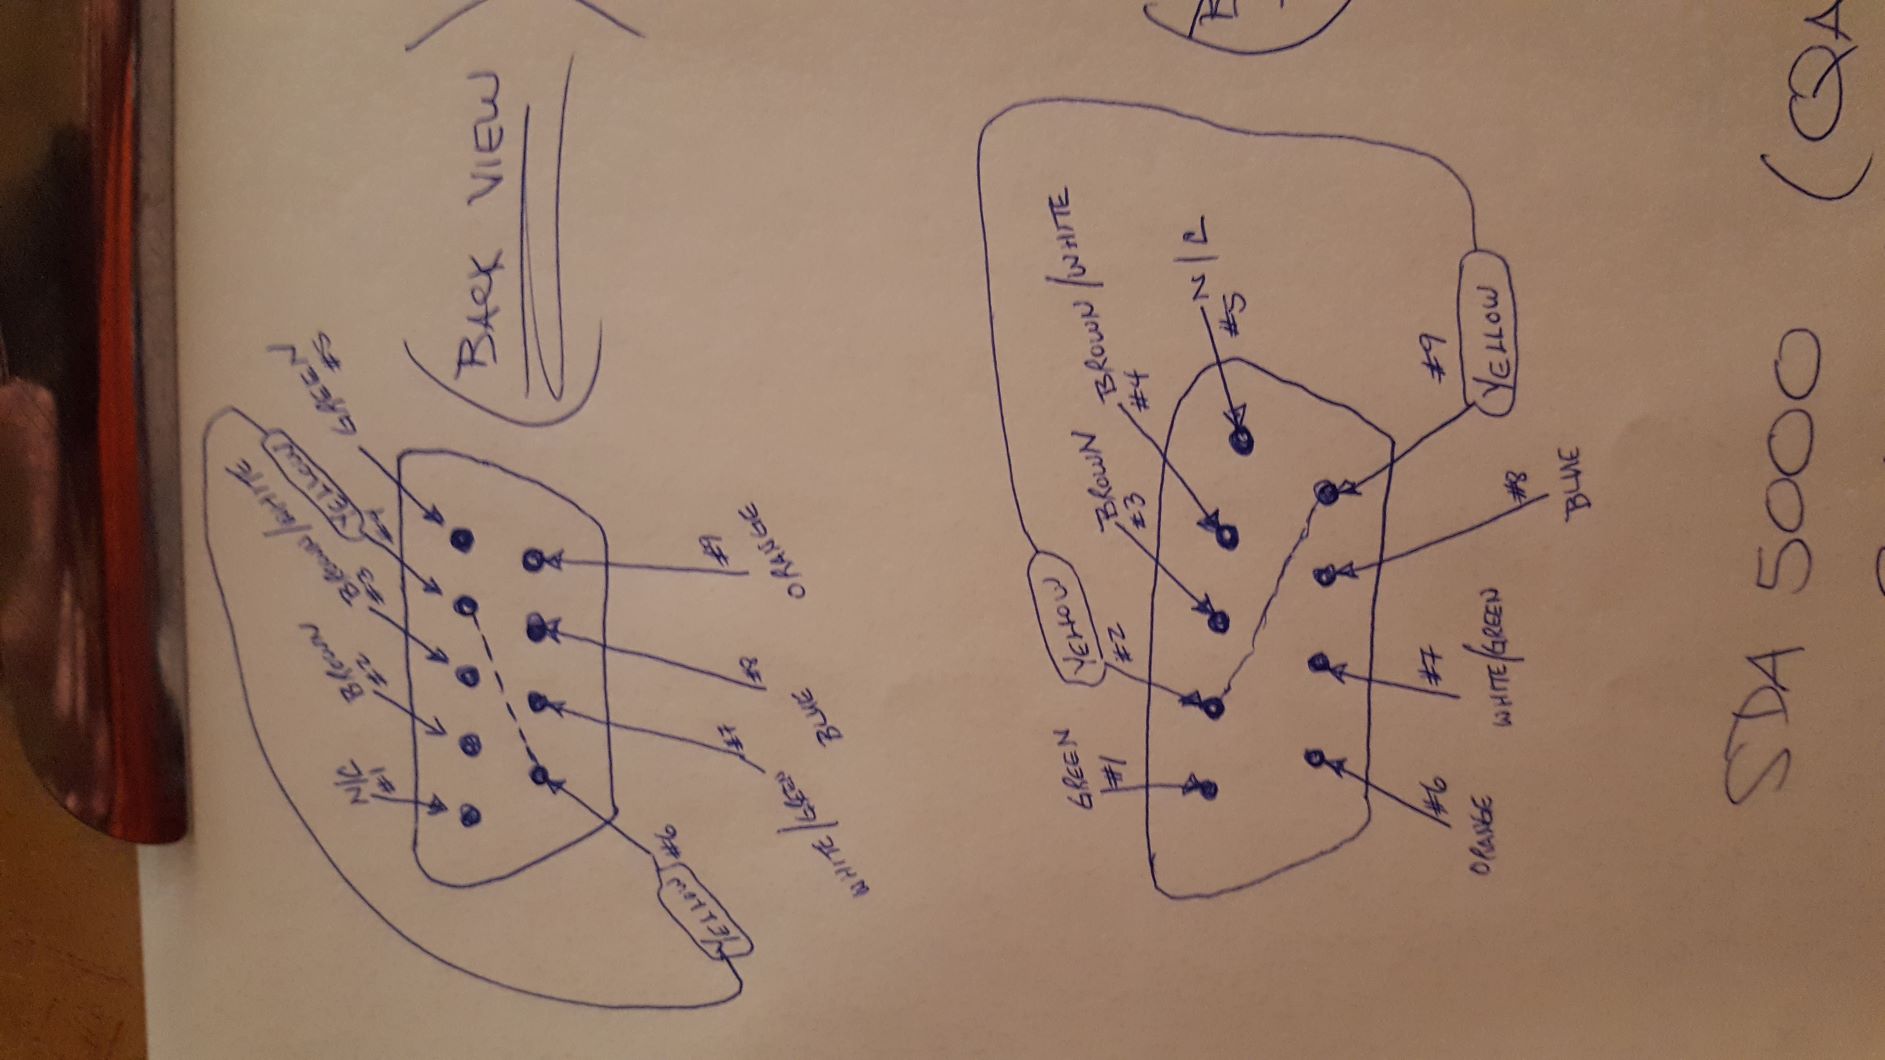 (BACK VIEW)
GREEN
#5
YELLOW
#4
BROWN/WHITE
#3
BROWN
#2
N/C
#1
#9
ORANGE
#8
BLUE
#7
WHITE/GREEN
#6
YELLOW
N/C
#5
BROWN/WHITE
#4
BROWN
#3
YELLOW
#2
GREEN
#1
#9
YELLOW
#8
BLUE
#7
WHITE/GREEN
#6
ORANGE
SDA 5000 (QA